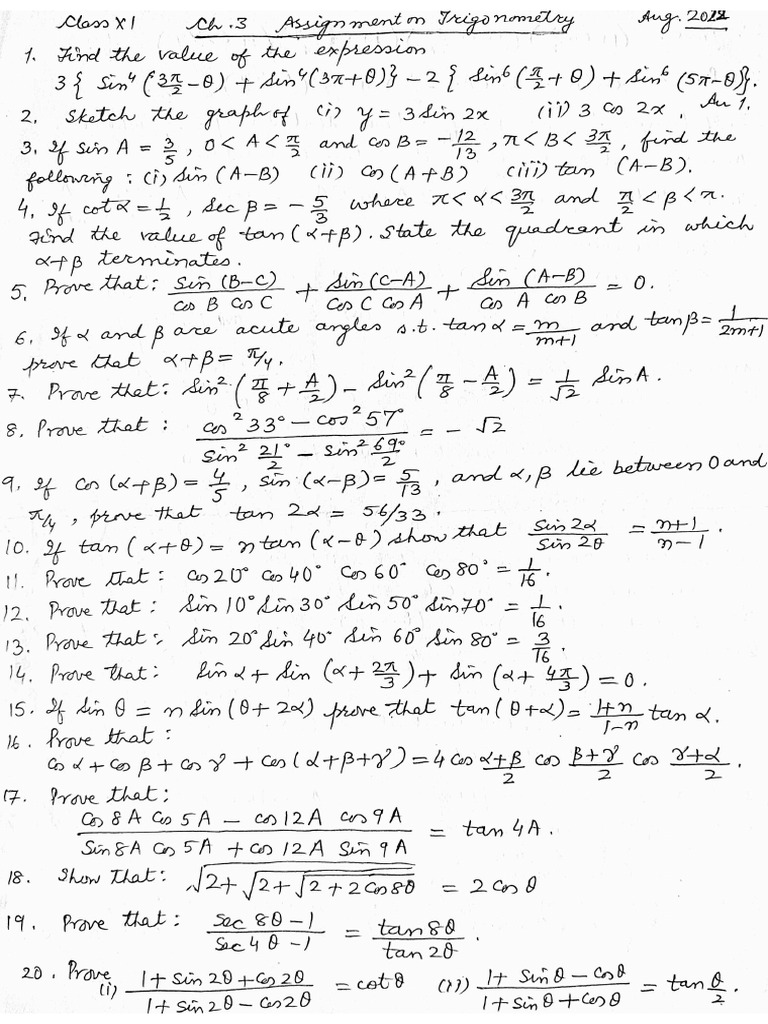 Class XI Ch.3 Assignment on Trigonometry Aug. 2012
1. Find the value of the expression
3{ sin⁴(3π/2 - θ) + sin⁴(3π + θ)} - 2{ sin⁶(π/2 + θ) + sin⁶(5π - θ)}. An 1.
2. Sketch the graph of (i) y = 3 sin 2x (ii) 3 cos 2x.
3. If sin A = 3/5, 0 < A < π/2 and cos B = -12/13, π < B < 3π/2, find the
following: (i) sin (A-B) (ii) cos (A+B) (iii) tan (A-B).
4. If cot α = 1/2, sec β = -5/3 where π < α < 3π/2 and π/2 < β < π.
Find the value of tan(α+β). State the quadrant in which
α+β terminates.
5. Prove that: sin(B-C)/cos B cos C + sin(C-A)/cos C cos A + sin(A-B)/cos A cos B = 0.
6. If α and β are acute angles s.t. tan α = m/m+1 and tan β = 1/2m+1
prove that α+β = π/4.
7. Prove that: sin²(π/8 + A/2) - sin²(π/8 - A/2) = 1/√2 sin A.
8. Prove that: cos²33° - cos²57° / sin² 21°/2 - sin² 69°/2 = -√2
9. If cos (α+β) = 4/5, sin (α-β) = 5/13, and α, β lie between 0 and
π/4, prove that tan 2α = 56/33.
10. If tan(α+θ) = n tan(α-θ) show that sin 2α/sin 2θ = n+1/n-1
11. Prove that: cos 20° cos 40° cos 60° cos 80° = 1/16.
12. Prove that: sin 10° sin 30° sin 50° sin 70° = 1/16.
13. Prove that: sin 20° sin 40° sin 60° sin 80° = 3/16.
14. Prove that: sin α + sin (α + 2π/3) + sin (α + 4π/3) = 0.
15. If sin θ = n sin(θ + 2α) prove that tan(θ+α) = 1+n/1-n tan α.
16. Prove that:
cos α + cos β + cos γ + cos (α+β+γ) = 4 cos α+β/2 cos β+γ/2 cos γ+α/2.
17. Prove that:
cos 8A cos 5A - cos 12A cos 9A / sin 8A cos 5A + cos 12A sin 9A = tan 4A.
18. Show that: √2+√2+√2+2cos8θ = 2 cos θ
19. Prove that: sec 8θ - 1/sec 4θ - 1 = tan 8θ/tan 2θ.
20. Prove
(i) 1 + sin 2θ + cos 2θ / 1 + sin 2θ - cos 2θ = cot θ (ii) 1 + sin θ - cos θ / 1 + sin θ + cos θ = tan θ/2.